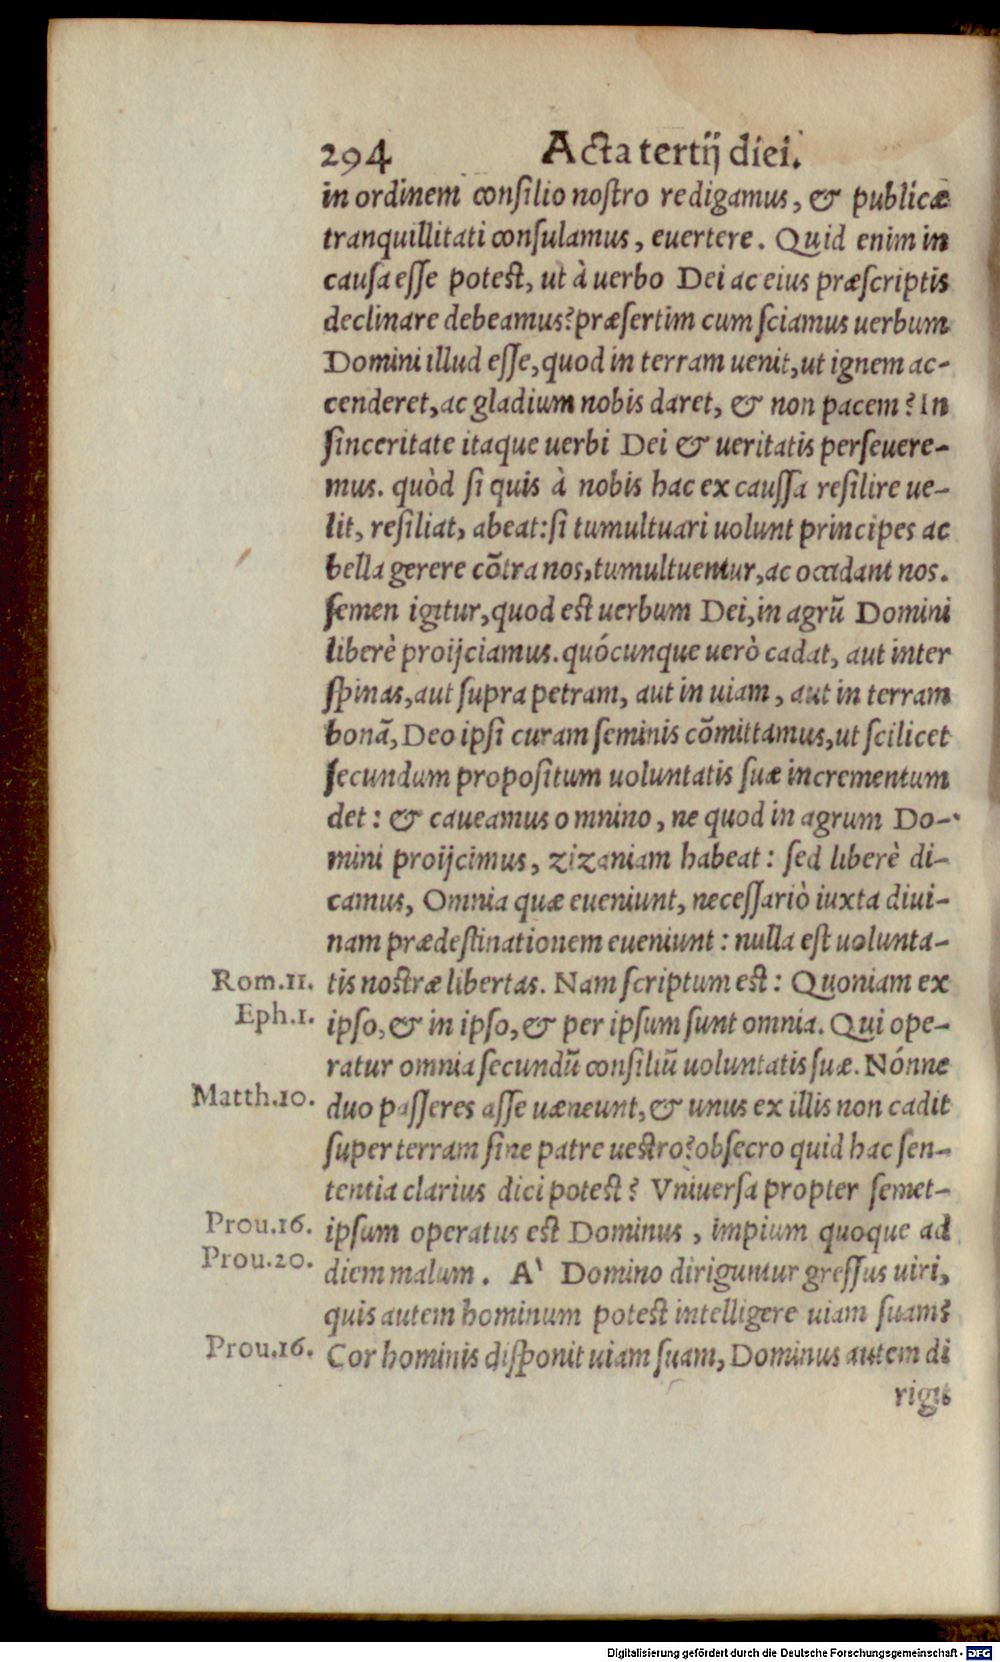 294 Acta tertij diei.
in ordinem consilio nostro redigamus, & publicæ
tranquillitati consulamus, euertere. Quid enim in
causa esse potest, ut à uerbo Dei ac eius præscriptis
declinare debeamus? præsertim cum sciamus uerbum
Domini illud esse, quod in terram uenit, ut ignem ac-
cenderet, ac gladium nobis daret, & non pacem? In
sinceritate itaque uerbi Dei & ueritatis perseuere-
mus. quòd si quis à nobis hac ex caussa resilire ue-
lit, resiliat, abeat: si tumultuari uolunt principes ac
bella gerere cōtra nos, tumultuentur, ac occidant nos.
semen igitur, quod est uerbum Dei, in agrū Domini
liberè proijciamus. quócunque uerò cadat, aut inter
spinas, aut supra petram, aut in uiam, aut in terram
bonā, Deo ipsi curam seminis cōmittamus, ut scilicet
secundum propositum uoluntatis suæ incrementum
det: & caueamus omnino, ne quod in agrum Do-
mini proijcimus, zizaniam habeat: sed liberè di-
camus, Omnia quæ eueniunt, necessariò iuxta diui-
nam prædestinationem eueniunt: nulla est uolunta-
Rom.11. tis nostræ libertas. Nam scriptum est: Quoniam ex
Eph.1. ipso, & in ipso, & per ipsum sunt omnia. Qui ope-
ratur omnia secundū consiliū uoluntatis suæ. Nónne
Matth.10. duo passeres asse uæneunt, & unus ex illis non cadit
super terram sine patre uestro? obsecro quid hac sen-
tentia clarius dici potest? Vniuersa propter semet-
Prou.16. ipsum operatus est Dominus, impium quoque ad
Prou.20. diem malum. A` Domino diriguntur gressus uiri,
quis autem hominum potest intelligere uiam suam?
Prou.16. Cor hominis disponit uiam suam, Dominus autem di
rigit
Digitalisierung gefördert durch die Deutsche Forschungsgemeinschaft - DFG